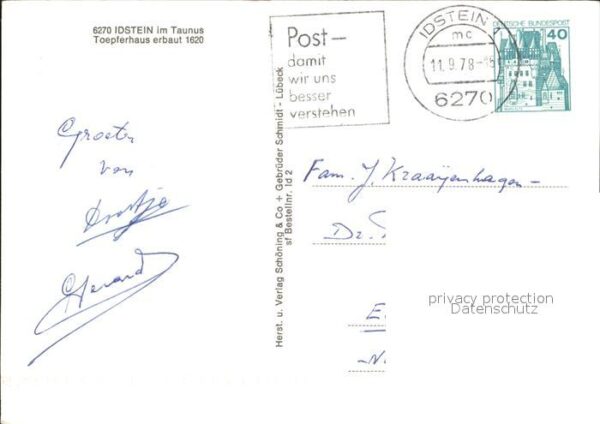 6270 IDSTEIN im Taunus
Toepferhaus erbaut 1620
Post—
damit
wir uns
besser
verstehen
IDSTEIN 1
mc
11.9.78-15
6270
DEUTSCHE BUNDESPOST
40
Groeten
van
Gerard
Herst. u. Verlag Schöning & Co + Gebrüder Schmidt - Lübeck
sf Bestellnr. Id 2
Fam. J. Kraayenhagen-
Dr.
privacy protection
Datenschutz